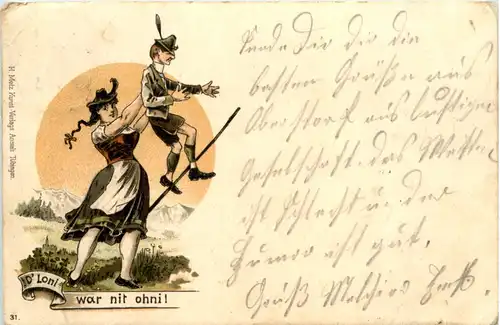 H. Metz Kunst-Verlags-Anstalt Tübingen.
D' Loni
war nit ohni!
31.
Sende Dir die
besten Grüße aus
Oberstdorf aus lustiger
Gesellschaft. das Wetter
ist schlecht u. der
Humor ist gut.
Gruß Melchior